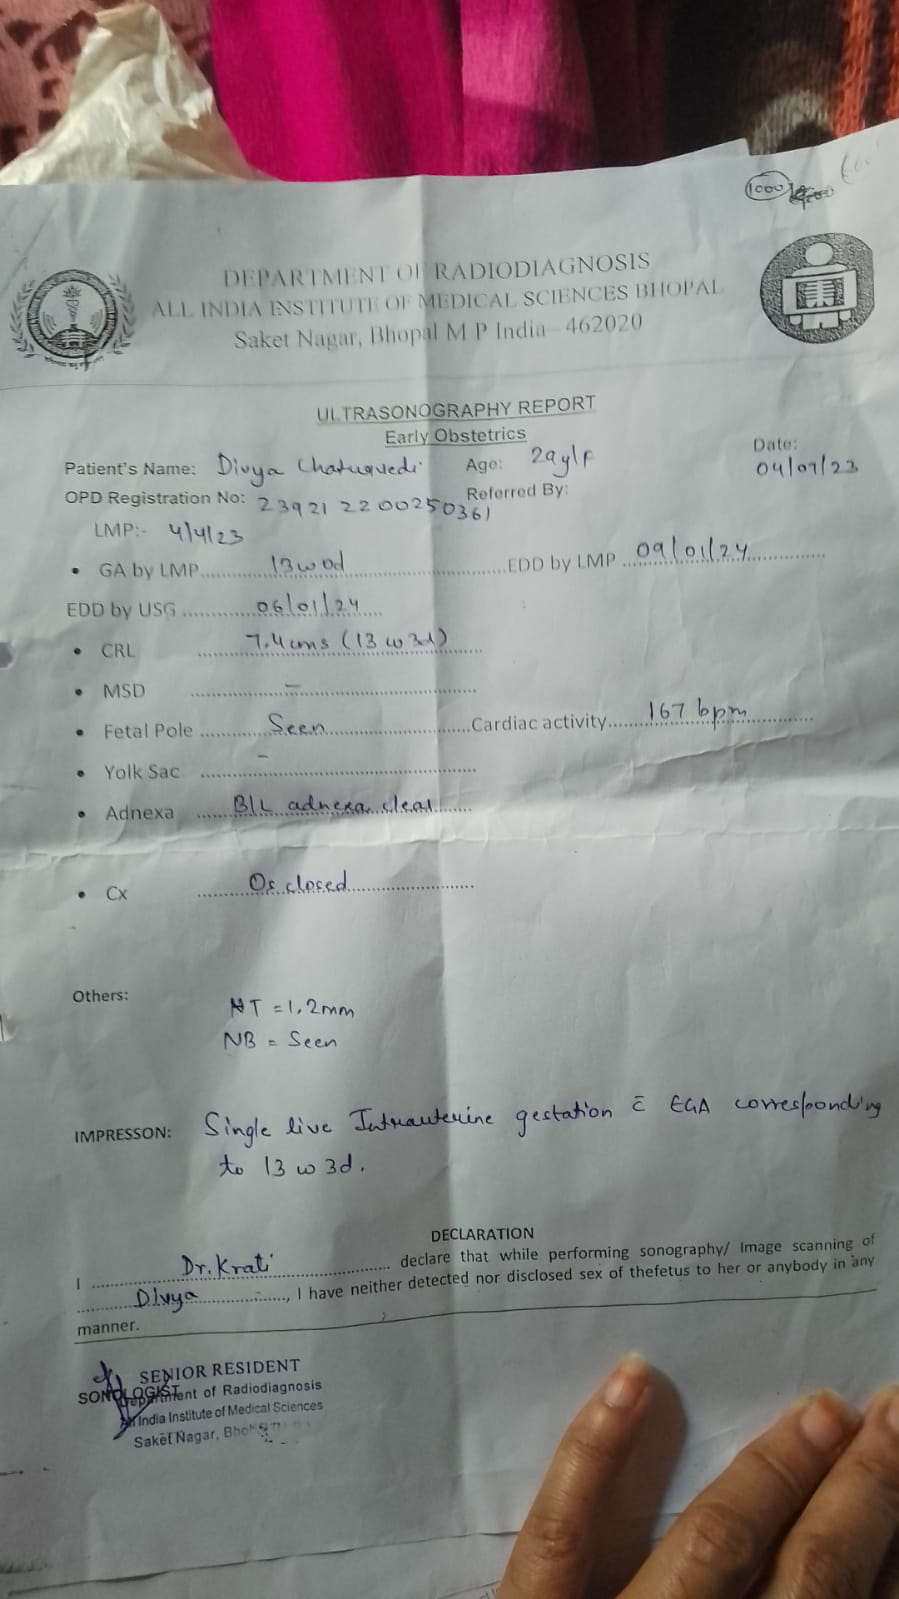 1000
DEPARTMENT OF RADIODIAGNOSIS
ALL INDIA INSTITUTE OF MEDICAL SCIENCES BHOPAL
Saket Nagar, Bhopal M P India - 462020
ULTRASONOGRAPHY REPORT
Early Obstetrics
Patient's Name: Divya Chaturvedi Age: 29y/F Date: 04/07/23
OPD Registration No: 239212200250361 Referred By:
LMP:- 4/4/23
• GA by LMP............13w0d............EDD by LMP ...09/01/24............
EDD by USG ............06/01/24....
• CRL ............7.4cms (13w3d)............
• MSD ............–............
• Fetal Pole ............Seen............Cardiac activity......167 bpm............
• Yolk Sac ............–............
• Adnexa ......B/L adnexa clear......
• Cx ............Os closed............
Others:
NT = 1.2mm
NB = Seen
IMPRESSON: Single live Intrauterine gestation c̄ EGA corresponding
to 13w3d.
DECLARATION
I ............Dr. Krati............ declare that while performing sonography/ Image scanning of
............Divya............, I have neither detected nor disclosed sex of thefetus to her or anybody in any
manner.
SENIOR RESIDENT
SONOLOGIST
Department of Radiodiagnosis
All India Institute of Medical Sciences
Saket Nagar,